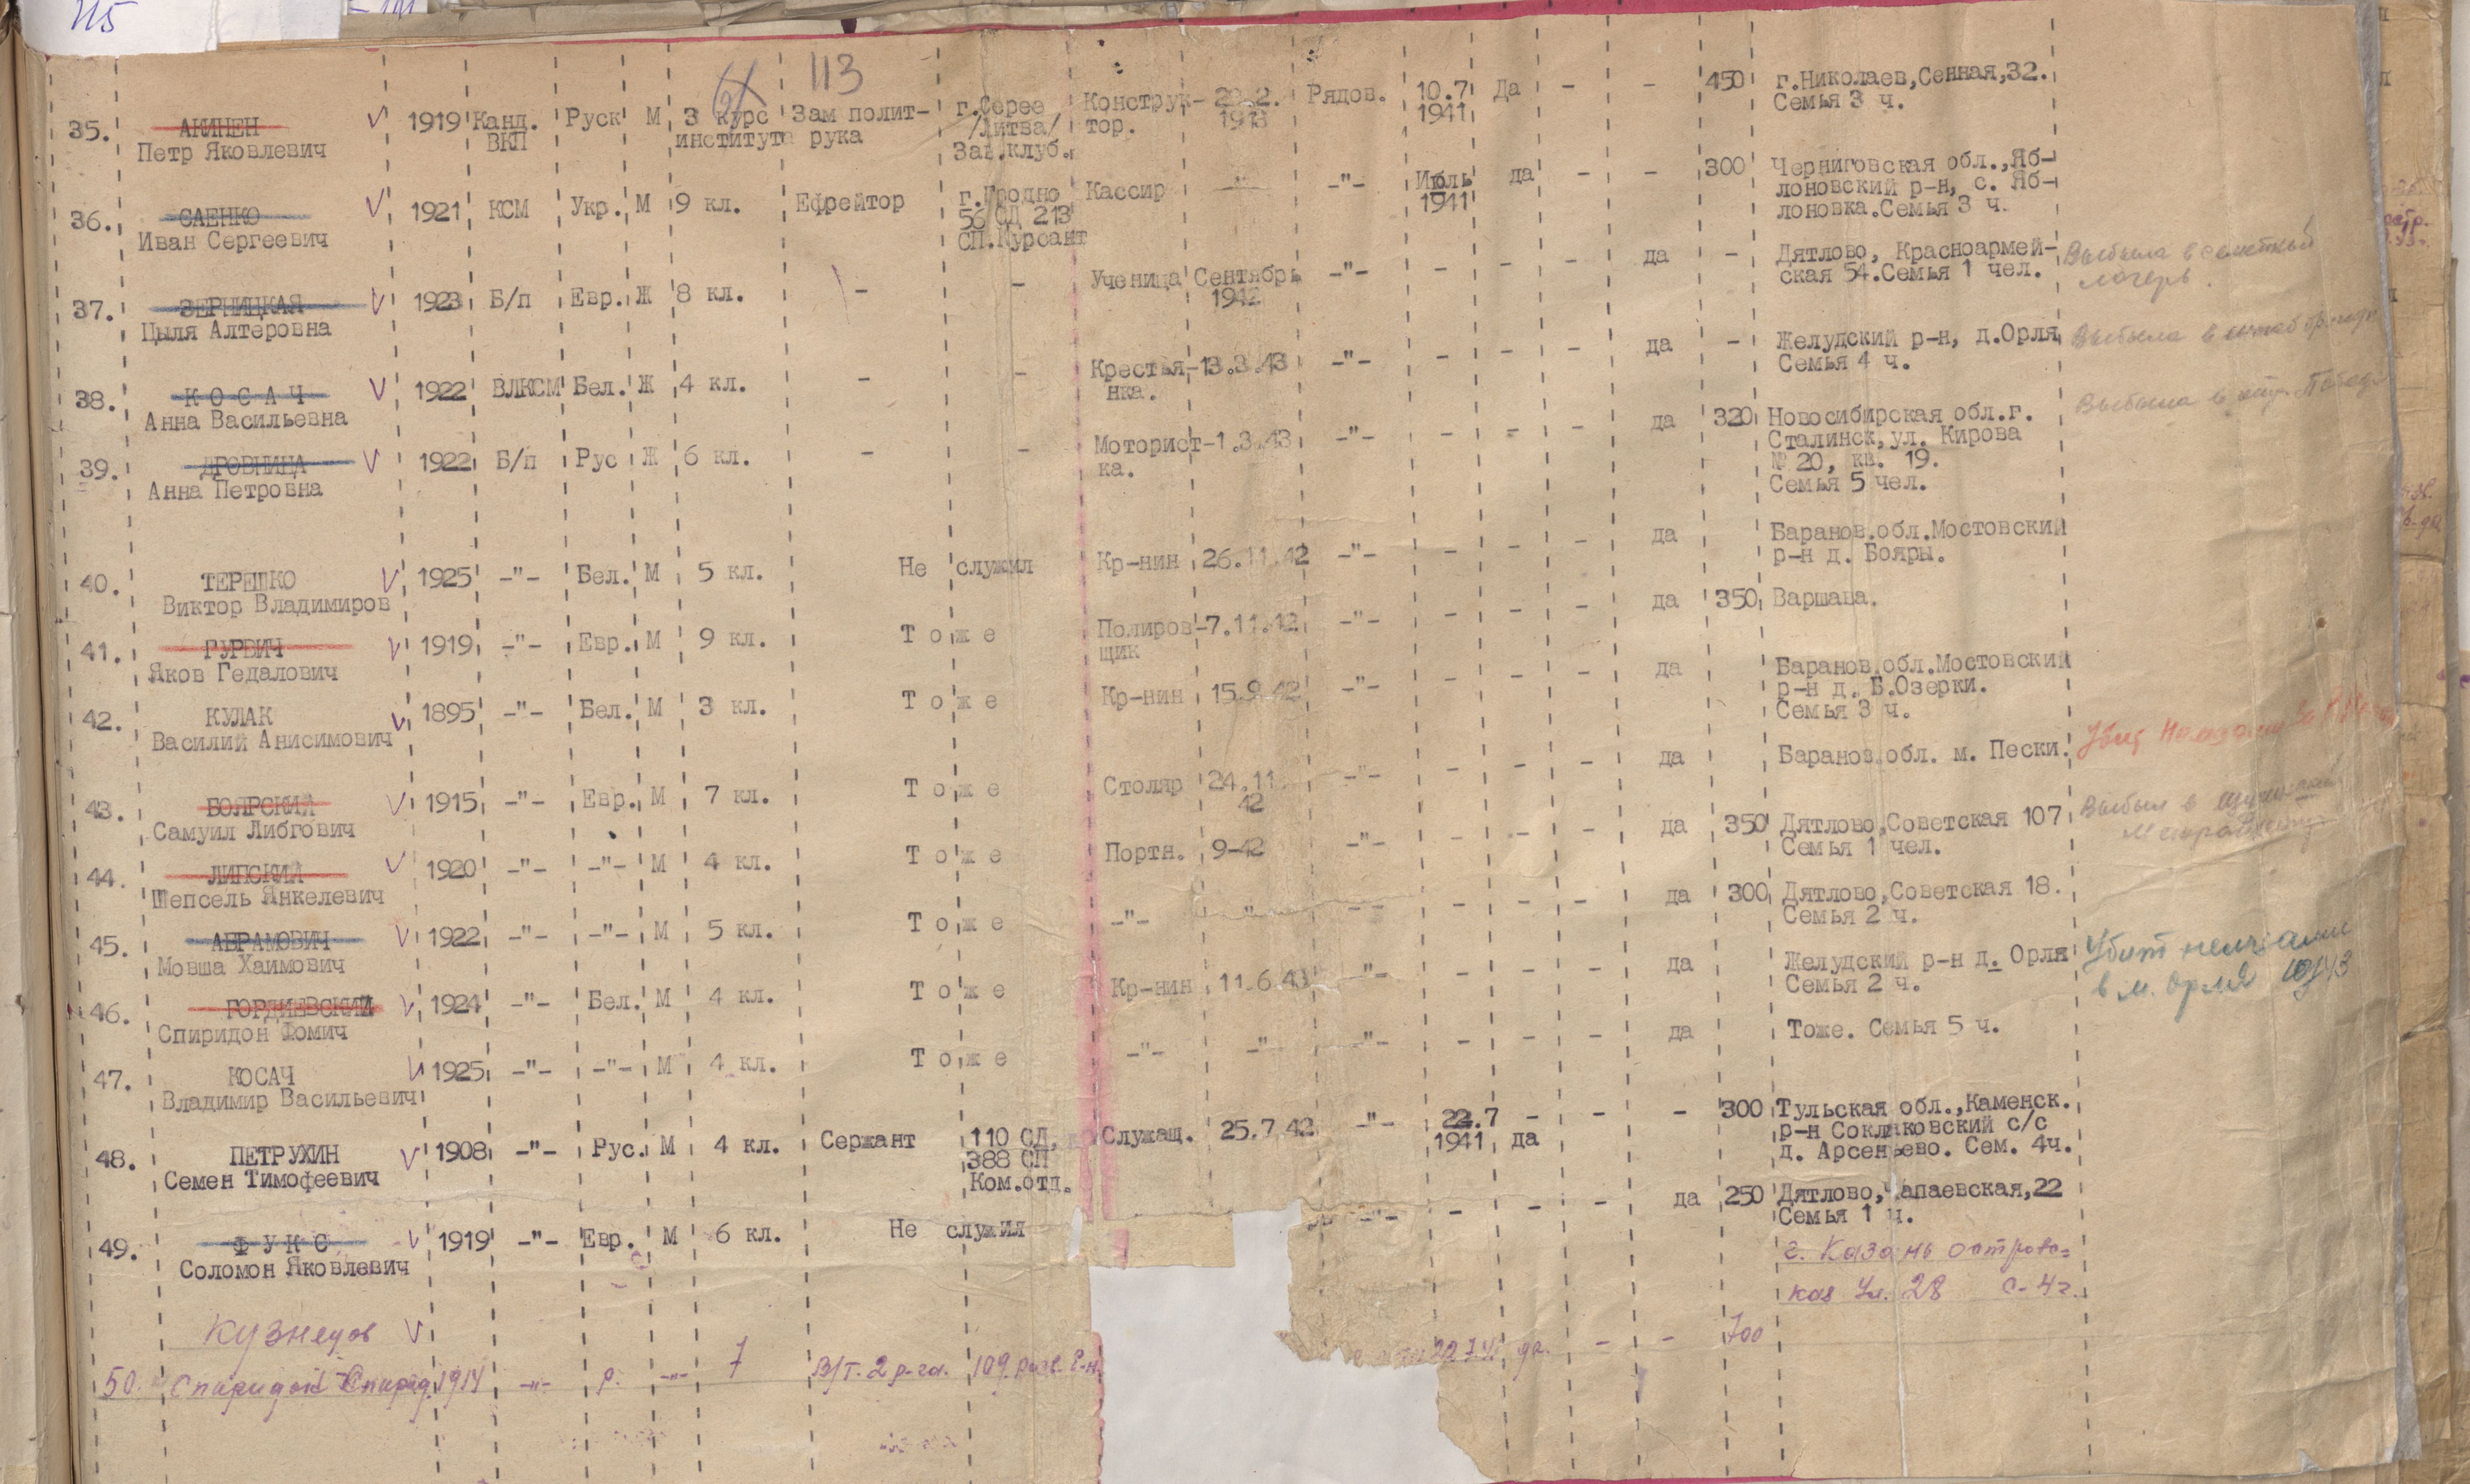 115
113
35. АКИНЕН 1919 Канд. Руск М 3 курс Зам полит- г.Серее Конструк- 2.2. Рядов. 10.7 Да - - 450 г.Николаев,Сенная,32.
Петр Яковлевич ВКП института рука /Литва/ тор. 1943 1941 Семья 3 ч.
Зав.клуб.
36. САЕНКО 1921 КСМ Укр. М 9 кл. Ефрейтор г.Гродно Кассир -"- -"- Июль да - - 300 Черниговская обл.,Яб-
Иван Сергеевич 56 СД 213 1941 лоновский р-н, с. Яб-
СП.Курсант лоновка.Семья 3 ч.
37. ЗЕРНИЦКАЯ 1923 Б/п Евр. Ж 8 кл. - - Ученица Сентябрь -"- - - - да - Дятлово, Красноармей- Выбыла в семейный
Цыля Алтеровна 1942 ская 54.Семья 1 чел. лагерь.
38. К О С А Ч 1922 ВЛКСМ Бел. Ж 4 кл. - - Крестья- 13.3.43 -"- - - - да - Желудский р-н, д.Орля Выбыла в штаб
Анна Васильевна нка. Семья 4 ч.
39. ДРОВНИНА 1922 Б/п Рус Ж 6 кл. - - Моторист- 1.3.43 -"- - - - да 320 Новосибирская обл.г. Выбыла в
Анна Петровна ка. Сталинск,ул. Кирова
№ 20, кв. 19.
Семья 5 чел.
40. ТЕРЕШКО 1925 -"- Бел. М 5 кл. Не служил Кр-нин 26.11.42 -"- - - - да Баранов.обл.Мостовский
Виктор Владимиров р-н д. Бояры.
41. ГУРВИЧ 1919 -"- Евр. М 9 кл. Т о ж е Полиров- 7.11.42 -"- - - - да 350 Варшава.
Яков Гедалович щик
42. КУЛАК 1895 -"- Бел. М 3 кл. Т о ж е Кр-нин 15.9.42 -"- - - - да Баранов.обл.Мостовский
Василий Анисимович р-н д. Б.Озерки.
Семья 3 ч.
43. БОЯРСКИЙ 1915 -"- Евр. М 7 кл. Т о ж е Столяр 24.11. -"- - - - да Баранов.обл. м. Пески. Убит
Самуил Либгович 42
44. ЛИПСКИЙ 1920 -"- -"- М 4 кл. Т о ж е Портн. 9-42 -"- - - - да 350 Дятлово,Советская 107 Выбыл в
Шепсель Янкелевич Семья 1 чел.
45. АБРАМОВИЧ 1922 -"- -"- М 5 кл. Т о ж е -"- -"- -"- - - - да 300 Дятлово,Советская 18.
Мовша Хаимович Семья 2 ч.
46. ГОРДИЕВСКИЙ 1924 -"- Бел. М 4 кл. Т о ж е Кр-нин 11.6.43 -"- - - - да Желудский р-н д. Орля Убит немцами
Спиридон Фомич Семья 2 ч. в м. Орля
47. КОСАЧ 1925 -"- -"- М 4 кл. Т о ж е -"- -"- -"- - - - да Тоже. Семья 5 ч.
Владимир Васильевич
48. ПЕТРУХИН 1908 -"- Рус. М 4 кл. Сержант 110 СД, Служащ. 25.7.42 -"- 22.7 - - - 300 Тульская обл.,Каменск.
Семен Тимофеевич 388 СП 1941 да р-н Соклаковский с/с
Ком.отд. д. Арсеньево. Сем. 4ч.
49. Ф У К С 1919 -"- Евр. М 6 кл. Не служил -"- - - - да 250 Дятлово,Чапаевская,22
Соломон Яковлевич Семья 1 ч.
г. Казань островс=
кая Ул. 28 с-4ч.
Кузнецов
50. Спиридон Спирид. 1914 -"- р. -"- 7 В/Т. 2 р-га. 109 22.7.41 да. - - 700